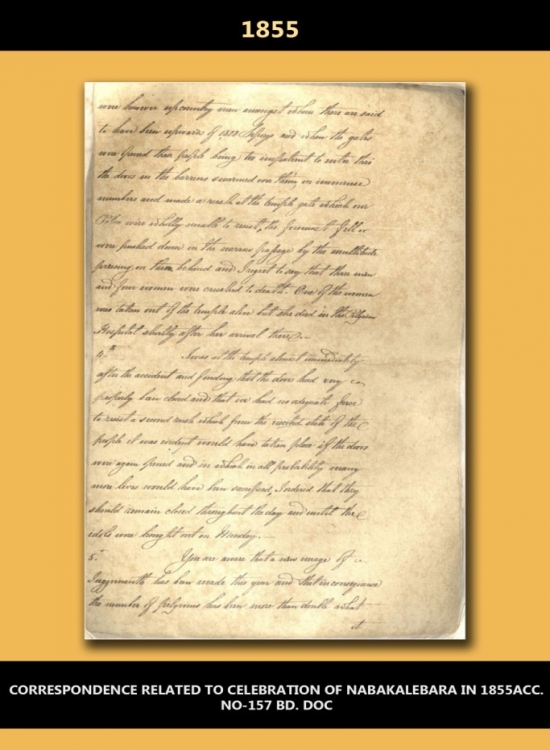 1855
were however upcountry men amongst whom there are said
to have been upwards of Sepoys and when the gates
were opened these people being too impatient to enter thro
the doors in the barriers swarmed over them in immense
numbers and made a rush at the temple gate which our
Police were wholly unable to resist, the foremost fell
were pushed down in the narrow passage by the multitude
pressing on them behind and I regret to say that three men
and four women were crushed to death. One of the women
was taken out of the temple alive but she died in the Pilgrim
Hospital shortly after her arrival there.
4. I was at the temple almost immediately
after the accident and finding that the doors had very
properly been closed and that we had no adequate force
to resist a second rush which from the excited state of the
people it was evident would have taken place if the doors
were again opened and in which in all probability many
more lives would have been sacrificed, I ordered that they
should remain closed throughout the day and until the
idols were brought out on Monday.
5. You are aware that a new image of
Juggernauth has been made this year and that in consequence
the number of pilgrims has been more than double what
it
CORRESPONDENCE RELATED TO CELEBRATION OF NABAKALEBARA IN 1855ACC.
NO-157 BD. DOC